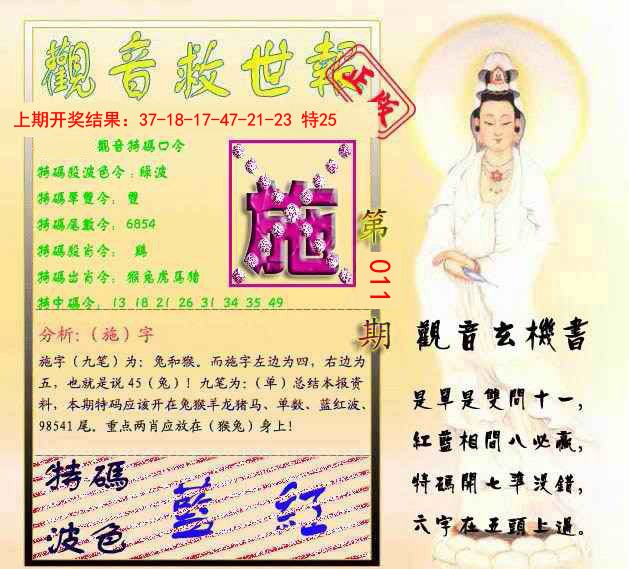 觀音救世報
正版
上期开奖结果：37-18-17-47-21-23 特25
觀音特碼口令
特碼殺波色令：綠波
特碼單雙令： 雙
特碼尾數令：6854
特碼殺肖令： 鷄
特碼出肖令：猴兔虎馬猪
特中碼令：13 18 21 26 31 34 35 49
施
第011期
分析:（施）字
施字（九笔）为：兔和猴。而施字左边为四，右边为
五，也就是说 45（兔）！九笔为：（单）总结本报资
料，本期特码应该开在兔猴羊龙猪马、单数、蓝红波、
98541 尾。重点两肖应放在（猴兔）身上！
特碼
波色
藍 紅
觀音玄機書
是單是雙問十一，
紅藍相間八必贏，
特碼開七準没錯，
六字在五頭上過。